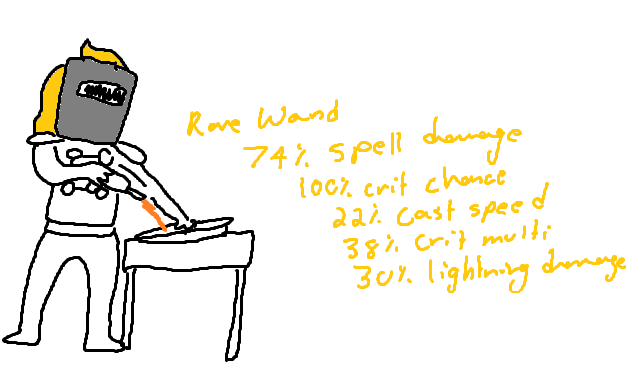 Rare Wand
74% spell damage
100% crit chance
22% cast speed
38% crit multi
30% lightning damage